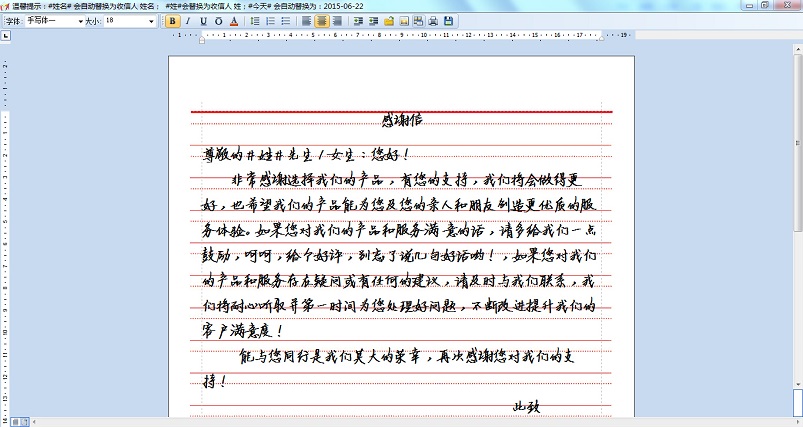 温馨提示：#姓名# 会自动替换为收信人 姓名； #姓#会替换为收信人 姓；#今天# 会自动替换为：2015-06-22
字体: 手写体一 大小: 18 B I U O A
1 1 2 3 4 5 6 7 8 9 10 11 12 13 14 15 16 17 18 19
感谢信
尊敬的#姓#先生/女生：您好！
非常感谢选择我们的产品，有您的支持，我们将会做得更
好，也希望我们的产品能为您及您的亲人和朋友创造更优质的服
务体验。如果您对我们的产品和服务满意的话，请多给我们一点
鼓励，呵呵，给个好评，别忘了说几句好话哟！，如果您对我们
的产品和服务存在疑问或有任何的建议，请及时与我们联系，我
们将耐心听取并第一时间为您处理好问题，不断改进提升我们的
客户满意度！
能与您同行是我们莫大的荣幸，再次感谢您对我们的支
持！
此致